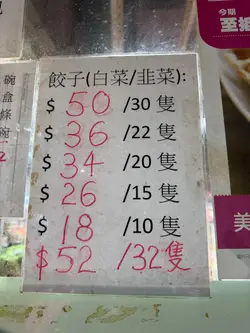 餃子(白菜/韭菜):
$ 50 /30 隻
$ 36 /22 隻
$ 34 /20 隻
$ 26 /15 隻
$ 18 /10 隻
$52 /32隻
碗
盒
條
今期
至
美